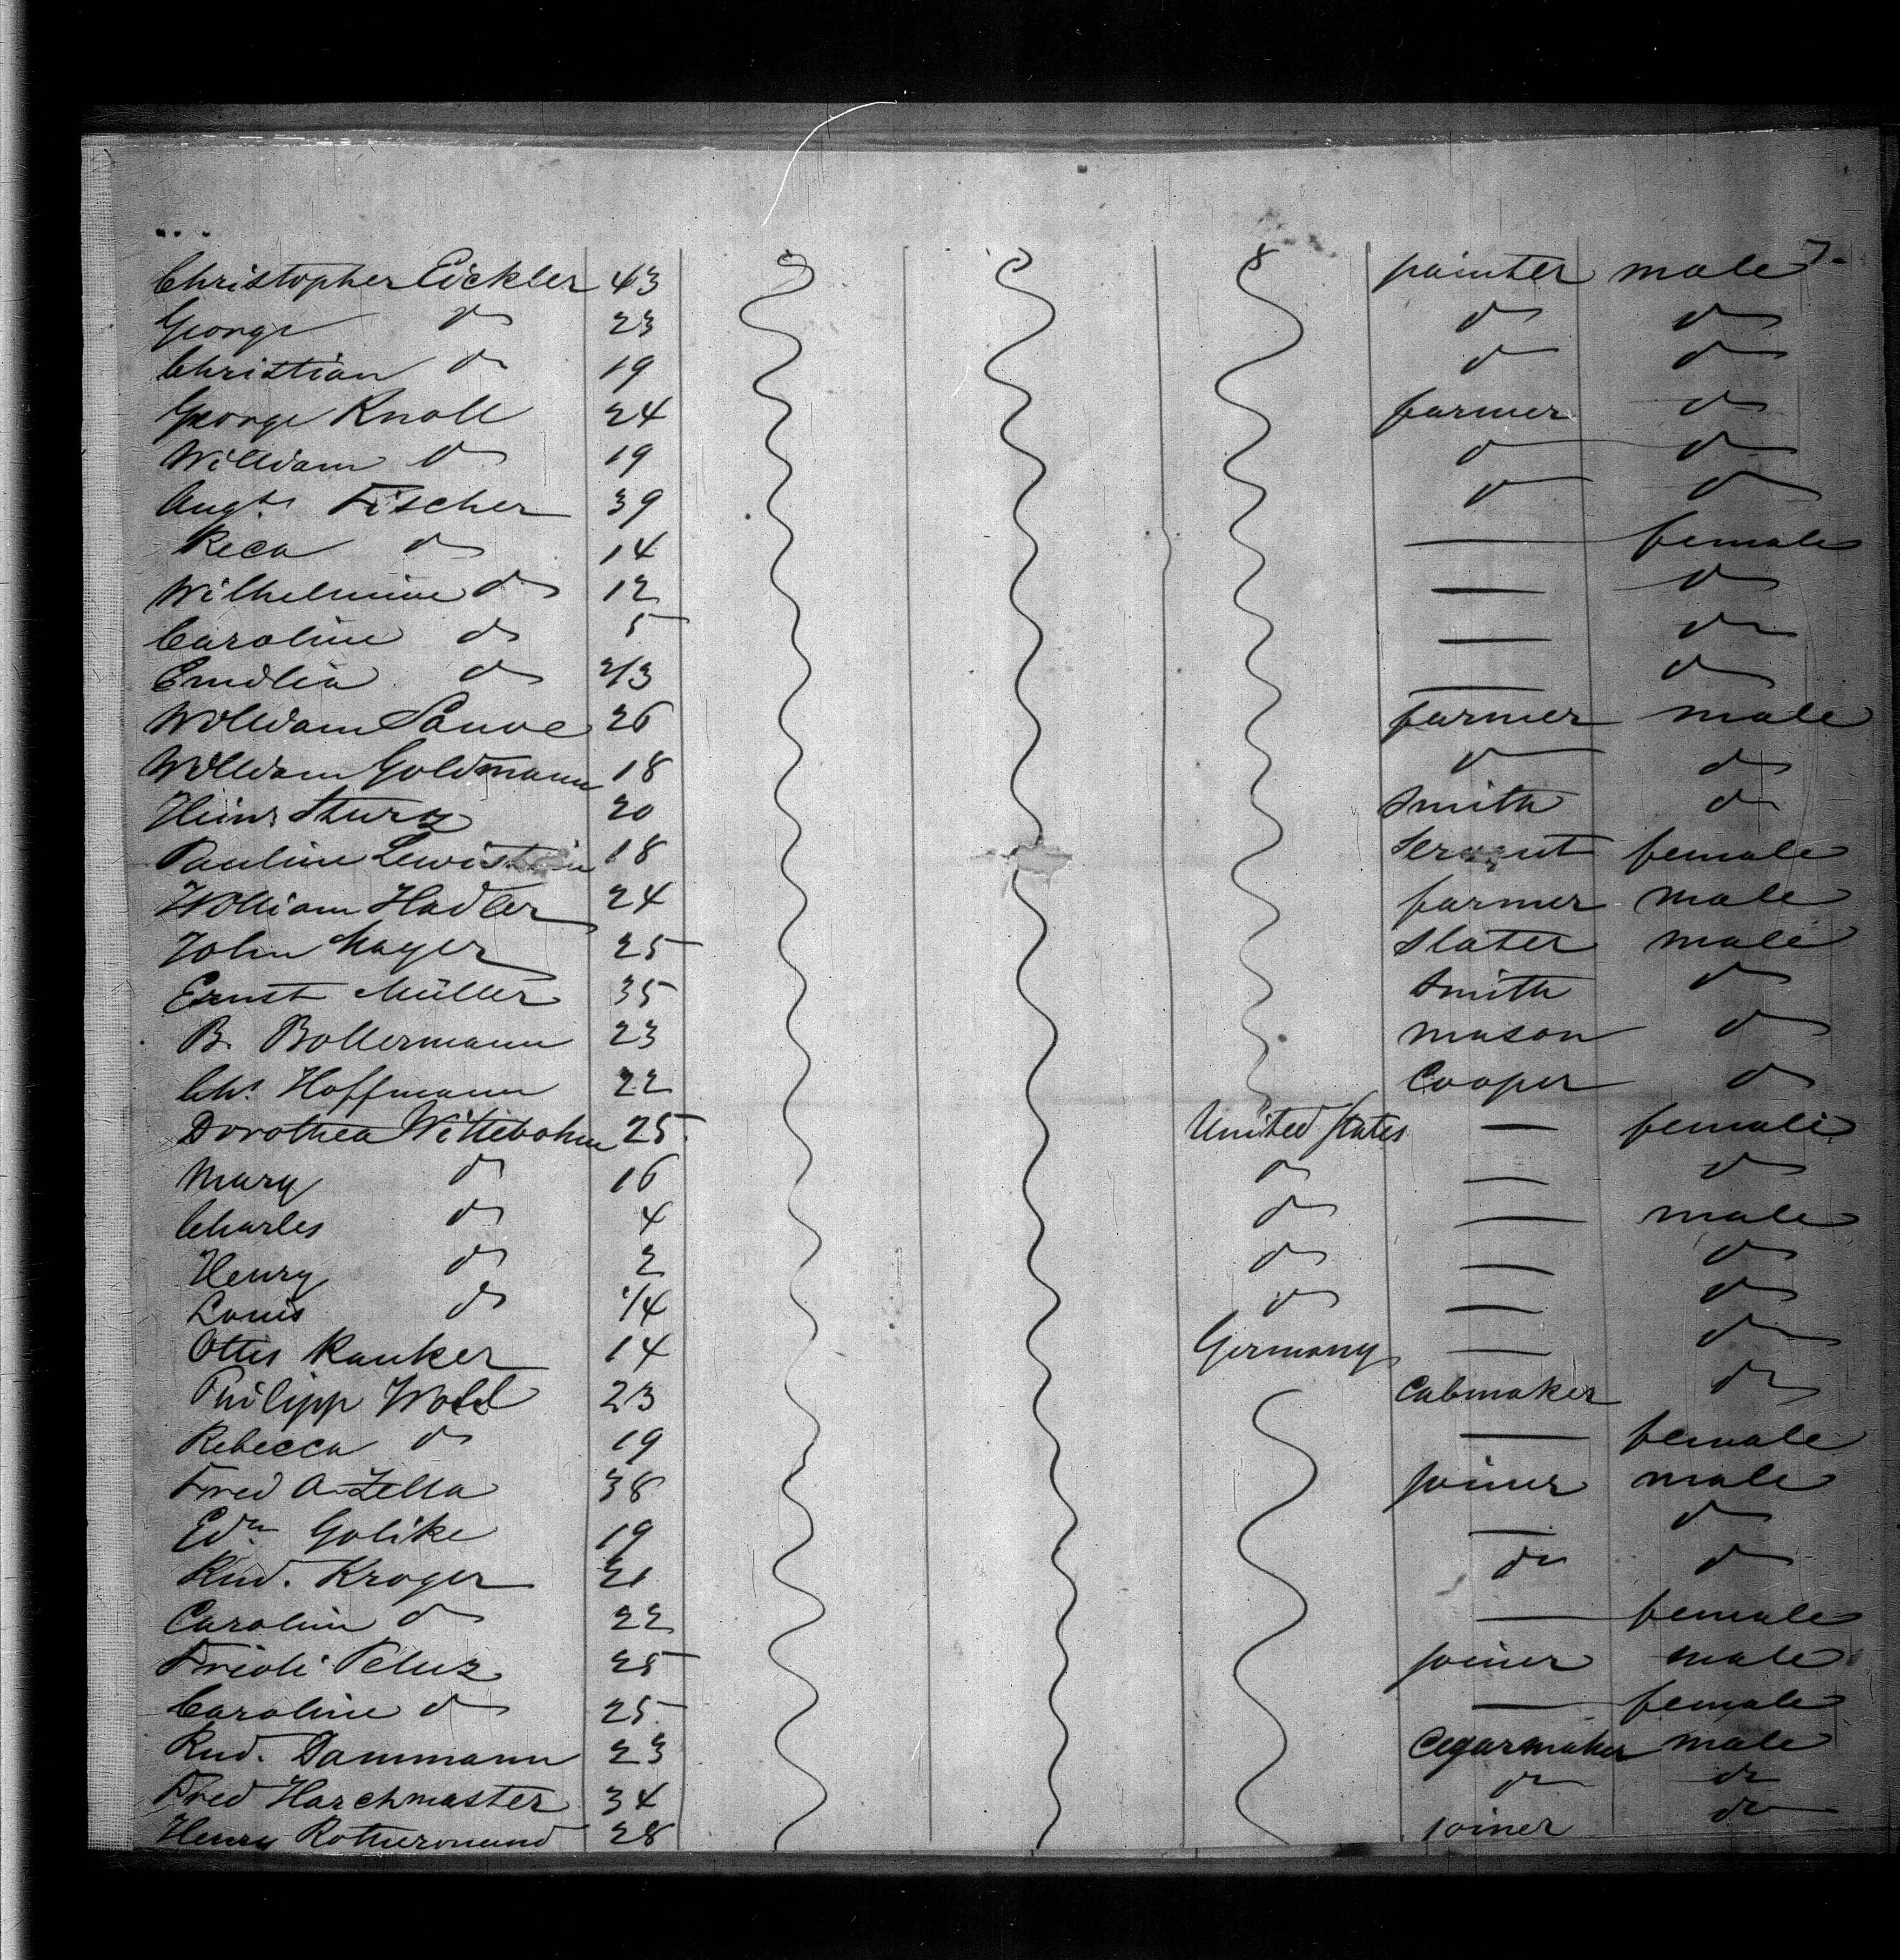 7.
Christopher Eickler 43 painter male
George do 23 do do
Christian do 19 do do
George Knoll 24 farmer do
William do 19 do do
Augt. Fischer 39 do do
Reca do 14 — female
Wilhelmine do 12 — do
Caroline do 5 — do
Emilia do 2/3 — do
William 26 farmer male
William Goldmann 18 do do
Heinr. Sturz 20 Smith do
Pauline 18 Servant female
William Hadler 24 farmer male
John Mayer 25 Slater male
Ernst Müller 35 Smith do
B. Bollermann 23 mason do
Chs. Hoffmann 22 Cooper do
Dorothea Wittebohm 25 United States — female
Mary do 16 do — do
Charles do 4 do — male
Henry do 2 do — do
Louis do 1/4 do — do
Ottis Ranker 14 Germany — do
Philipp 23 Cabmaker do
Rebecca do 19 — female
Fred 38 joiner male
Edu Golike 19 — do
Rud. Kroger do do
Carolin do 22 — female
25 joiner male
Caroline do 25 — female
Rud. Dammann 23 Cegarmaker male
Fred Harchmaster 34 do do
Henry Rothermund 28 joiner do